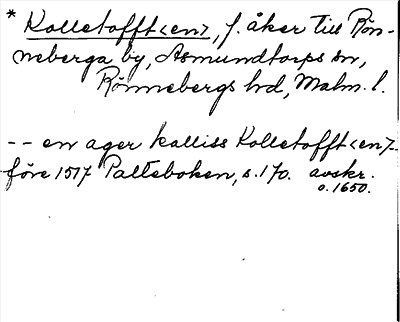 * Kolletofft<en>, f. åker till Rön-
neberga by, Asmundtorps sn,
Rönnebergs hd, Malm. l.
-- en ager kalliss Kolletofft<en>-
före 1517 Palteboken, s. 170. avskr.
o. 1650.